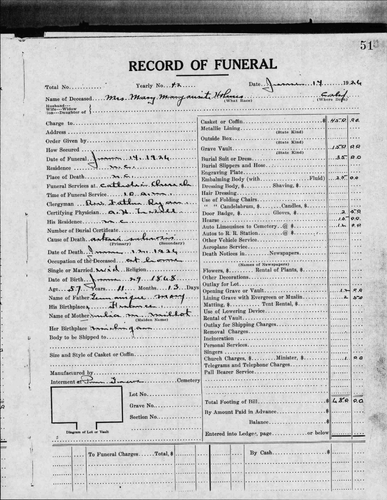 51
RECORD OF FUNERAL
Total No. Yearly No. 42 Date June 14 1926
Name of Deceased Mrs. Mary Margaret Holmes
(What Race) (Where Born)
Husband—
Wife—Widow
Son—Daughter of
Charge to
Address
Order Given by
How Secured
Date of Funeral June 14, 1926
Residence N.C.
Place of Death N.C.
Funeral Services at Catholic Church
Time of Service 10 a.m.
Clergyman Rev. Father Ryan
Certifying Physician
His Residence N.C.
Number of Burial Certificate
Cause of Death
(Primary) (Secondary)
Date of Death June 1926
Occupation of the Deceased at home
Single or Married wid Religion
Date of Birth June 29 1868
Age 57 Years 11 Months 13 Days
Name of Father
His Birthplace France
Name of Mother
(Maiden Name)
Her Birthplace Michigan
Body to be Shipped to
Size and Style of Casket or Coffin
Manufactured by
Interment at Pine Grove Cemetery
Lot No.
Grave No.
Section No.
Diagram of Lot or Vault
Casket or Coffin $ 450 00
Metallic Lining
(State Kind)
Outside Box
(State Kind)
Grave Vault 150 00
(State Kind)
Burial Suit or Dress 35 00
Burial Slippers and Hose
Engraving Plate
Embalming Body (with Fluid) 25 00
Dressing Body, $ Shaving, $
Hair Dressing
Use of Folding Chairs
" " Candelabrum, $ Candles, $
Door Badge, $ Gloves, $
Hearse
Auto Limousines to Cemetery @ $
Autos to R. R. Station @ $
Other Vehicle Service
Aeroplane Service
Death Notices in Newspapers
(Names of Newspapers)
Flowers, $ Rental of Plants, $
Outlay for Lot
Opening Grave or Vault
Lining Grave with Evergreen or Muslin
Matting, $ Tent Rental, $
Use of Lowering Device
Rental of Vault
Outlay for Shipping Charges
Removal Charges
Incineration
Personal Services
Singers
Church Charges, $ Minister, $
Telegrams and Telephone Charges
Pall Bearer Service
Total Footing of Bill $
By Amount Paid in Advance $
Balance $
Entered into Ledger, page or below
To Funeral Charges Total, $ By Cash $